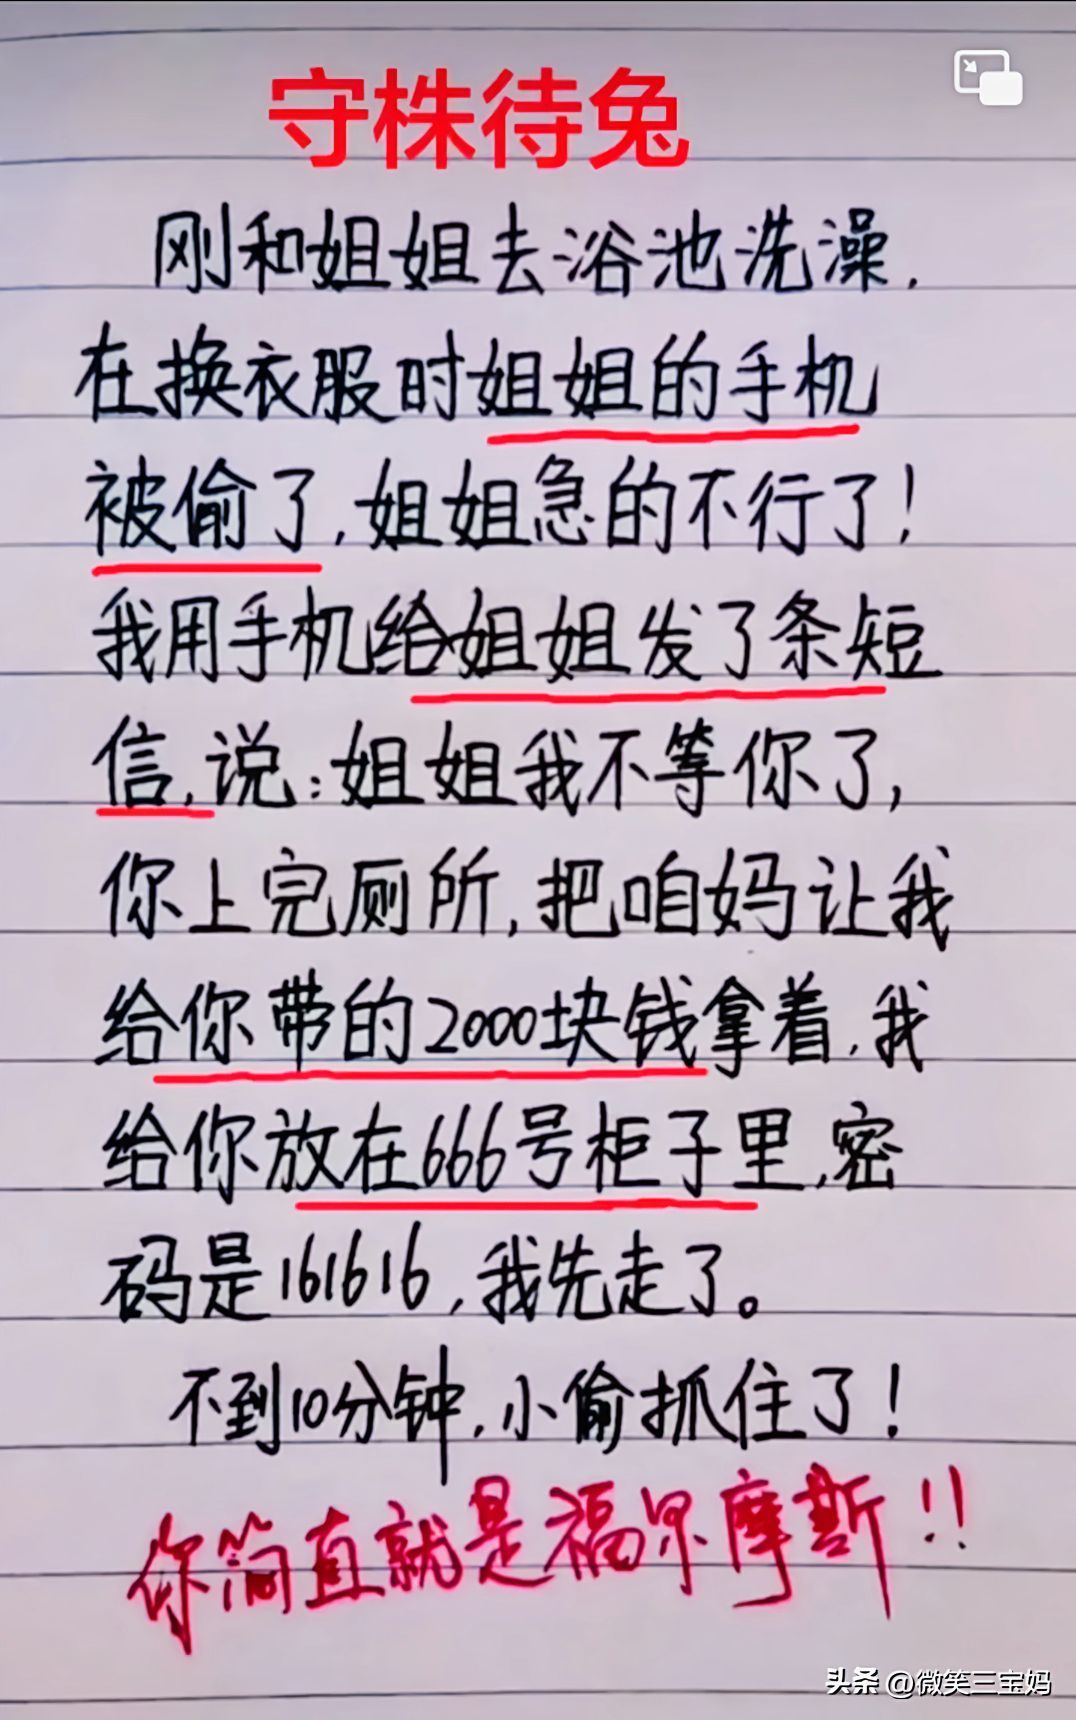 守株待兔
刚和姐姐去浴池洗澡.
在换衣服时姐姐的手机
被偷了,姐姐急的不行了!
我用手机给姐姐发了条短
信,说:姐姐我不等你了,
你上完厕所,把咱妈让我
给你带的2000块钱拿着,我
给你放在666号柜子里,密
码是161616,我先走了。
不到10分钟,小偷抓住了!
你简直就是福尔摩斯!!
头条 @微笑三宝妈